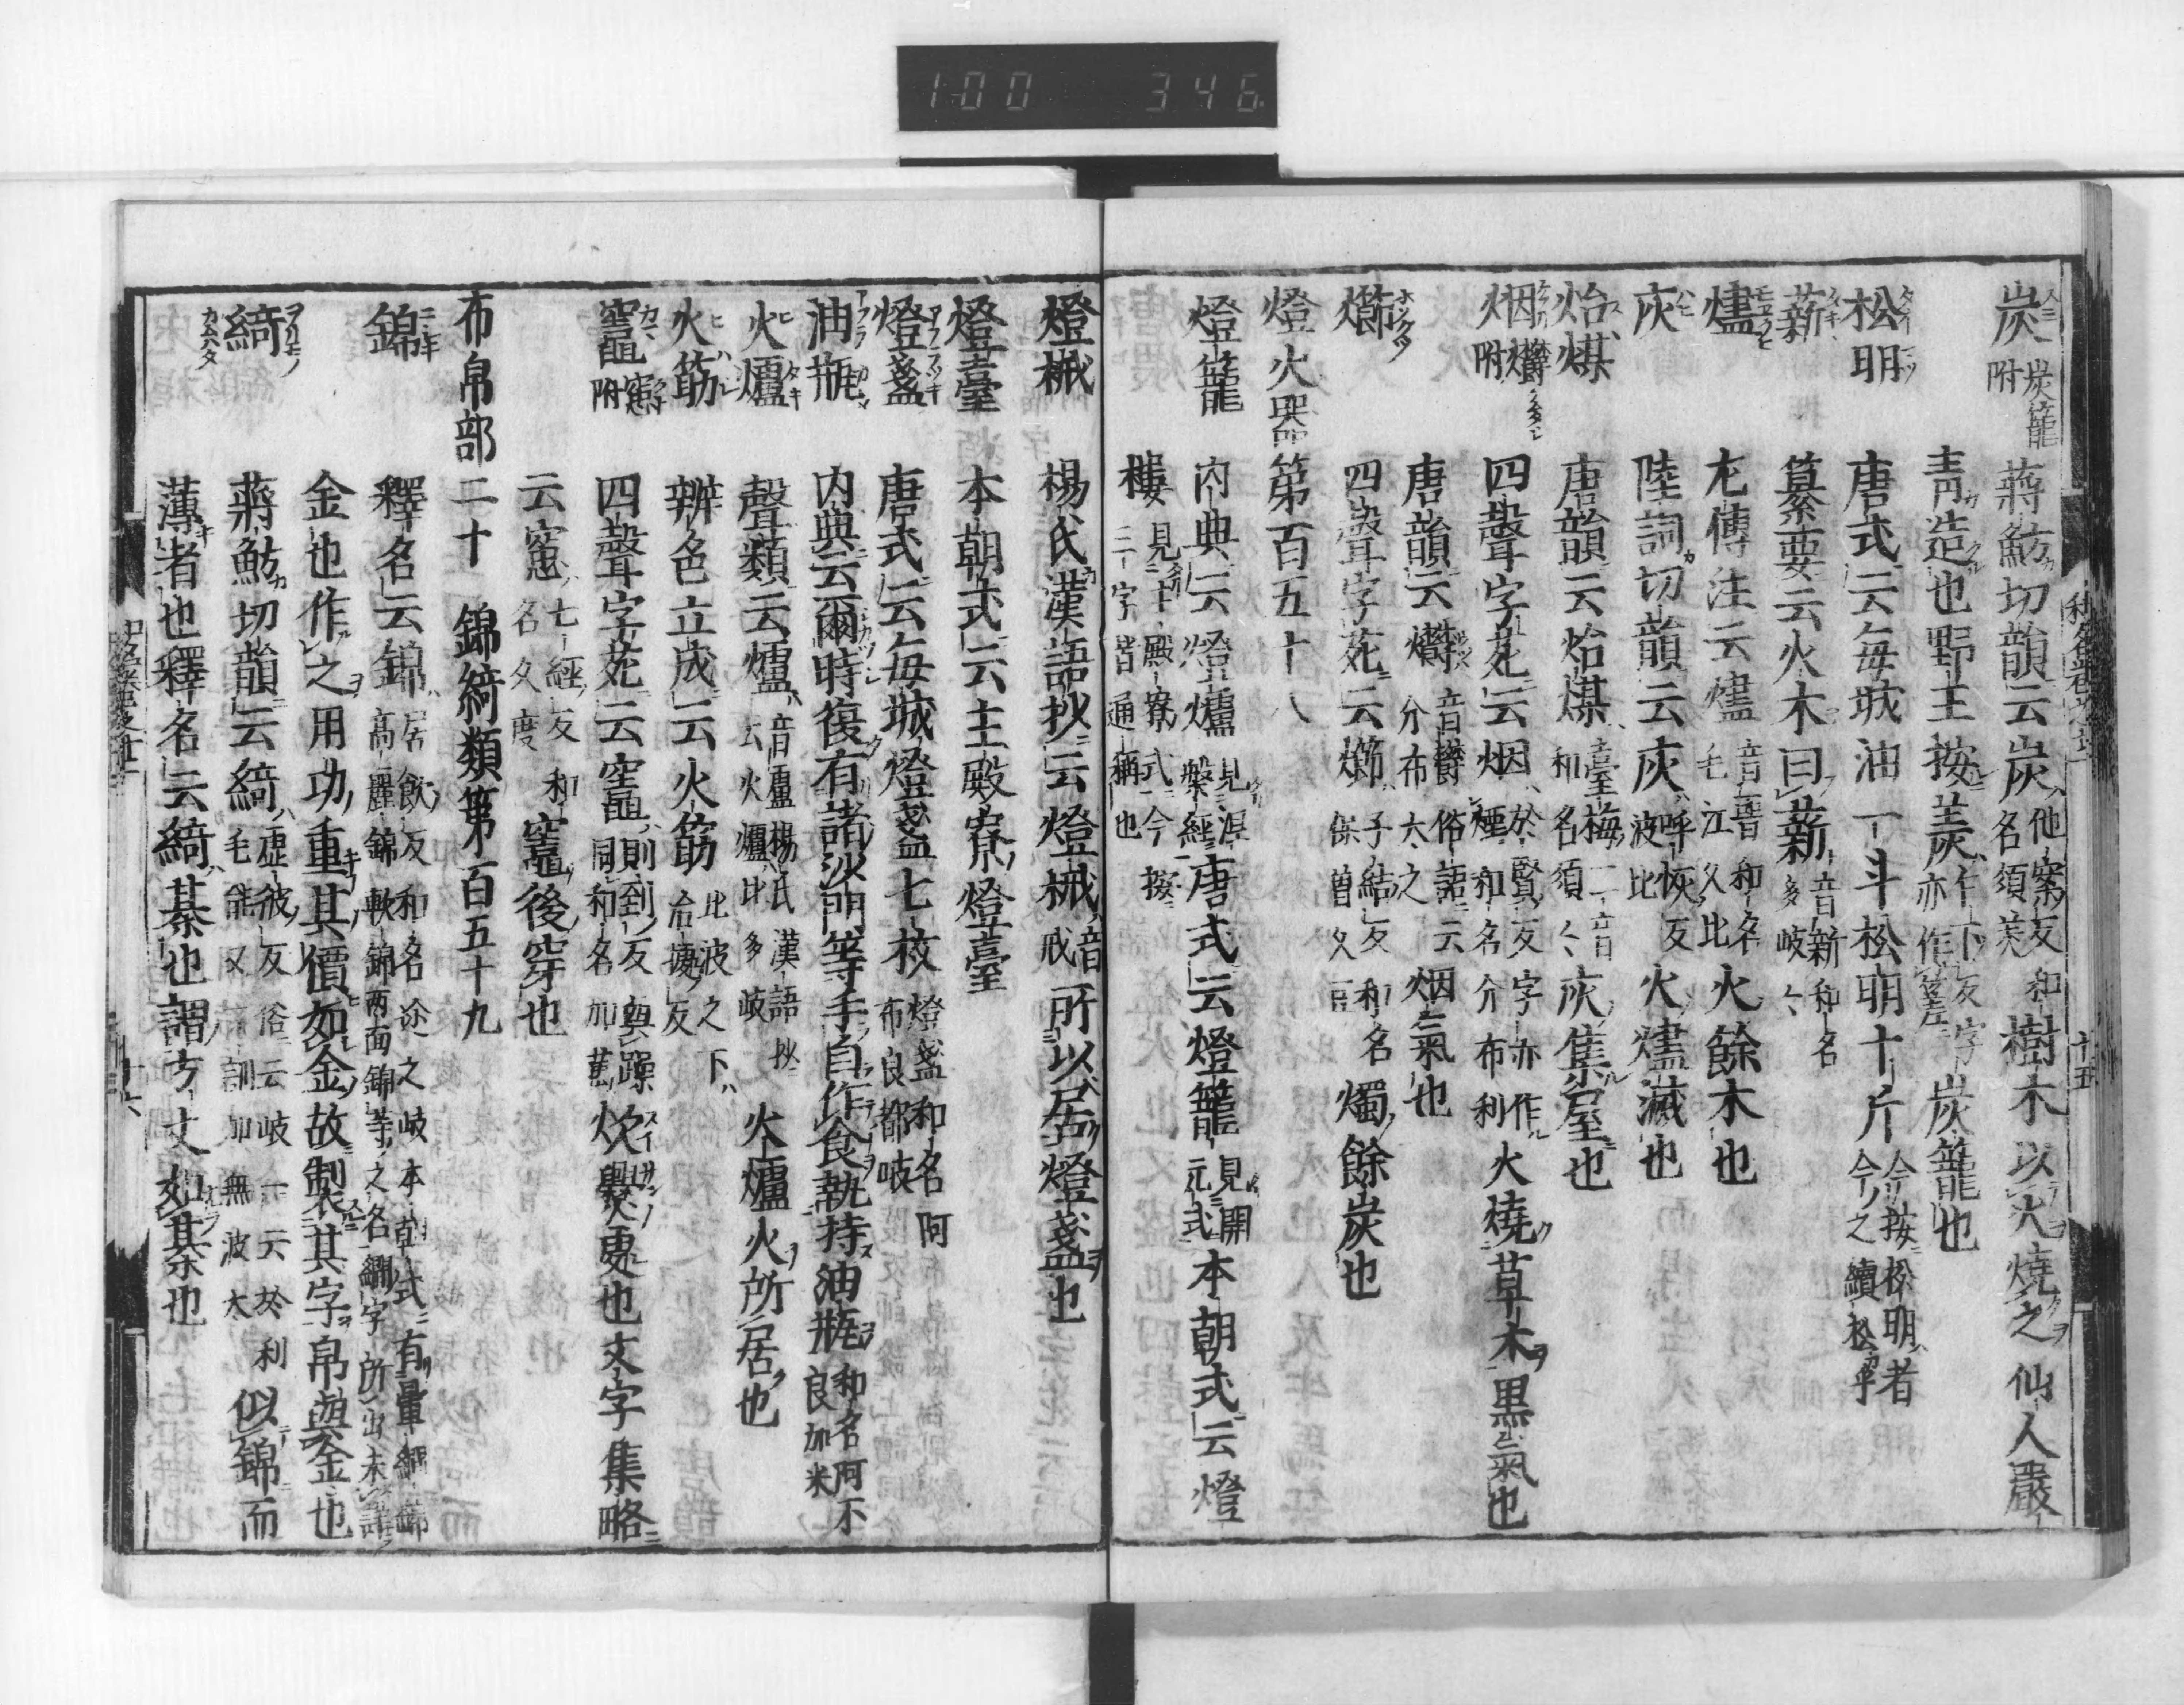 100 346
炭 炭籠附 蔣魴切韻云炭 他案反和名須美 樹木以火燒之仙人嚴
靑造也野王按䒳炭 仁下反字亦作筌 炭籠也
松明 唐式云每城油一斗松明十斤 今按松明者今之續松乎
薪 纂要云火木曰薪 音新和名多岐々
燼 左傳注云燼 音晋和名毛江久比 火餘木也
灰 陸詞切韻云灰 呼恢反波比 火燼滅也
炲煤 唐韻云炲煤 臺梅二音和名須々 灰集屋也
烟 㷉附 四聲字苑云烟 於賢反字亦作煙和名介布利 火燒草木黒氣也
唐韻云㷉 音欝俗語云介布太之 烟氣也
㸅 四聲字苑云㸅 子結反和名保曽久豆 燭餘炭也
燈火器第百五十八
燈籠 内典云燈爐 見涅槃經 唐式云燈籠 見開元式 本朝式云燈
樓 見主殿寮式今按三字皆通稱也
燈械 楊氏漢語抄云燈械 音戒 所以居燈盞也
燈臺 本朝式云主殿寮燈臺
燈盞 唐式云每城燈盞七枚 燈盞和名阿布良都岐
油瓶 内典云爾時復有諸沙門等手自作食執持油瓶 和名阿不良加米
火爐 聲類云爐 音盧楊氏漢語抄云火爐比多岐 火爐火所居也
火筯 辨色立成云火筯 比波之下治據反
竈 窻附 四聲字苑云竈 則到反與躁同和名加萬 炊爨處也文字集略
云窻 七經反和名久度 竈後穿也
布帛部二十 錦綺類第百五十九
錦 釋名云錦 居飮反和名迩之岐本朝式有暈繝錦高麗錦軟錦兩面錦等之名繝字所出未詳
金也作之用功重其價如金故制其字帛與金也
綺 蔣魴切韻云綺 虚彼反俗云岐一云於利毛能又訓加無波太 似錦而
薄者也釋名云綺棊也謂方文如棊也